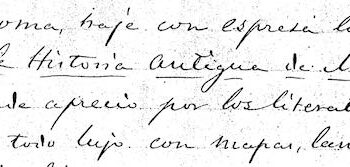 oma, bajo con espresa l
Historia Antigua de M
de aprecio por los litera
todo lujo con mapas, lam